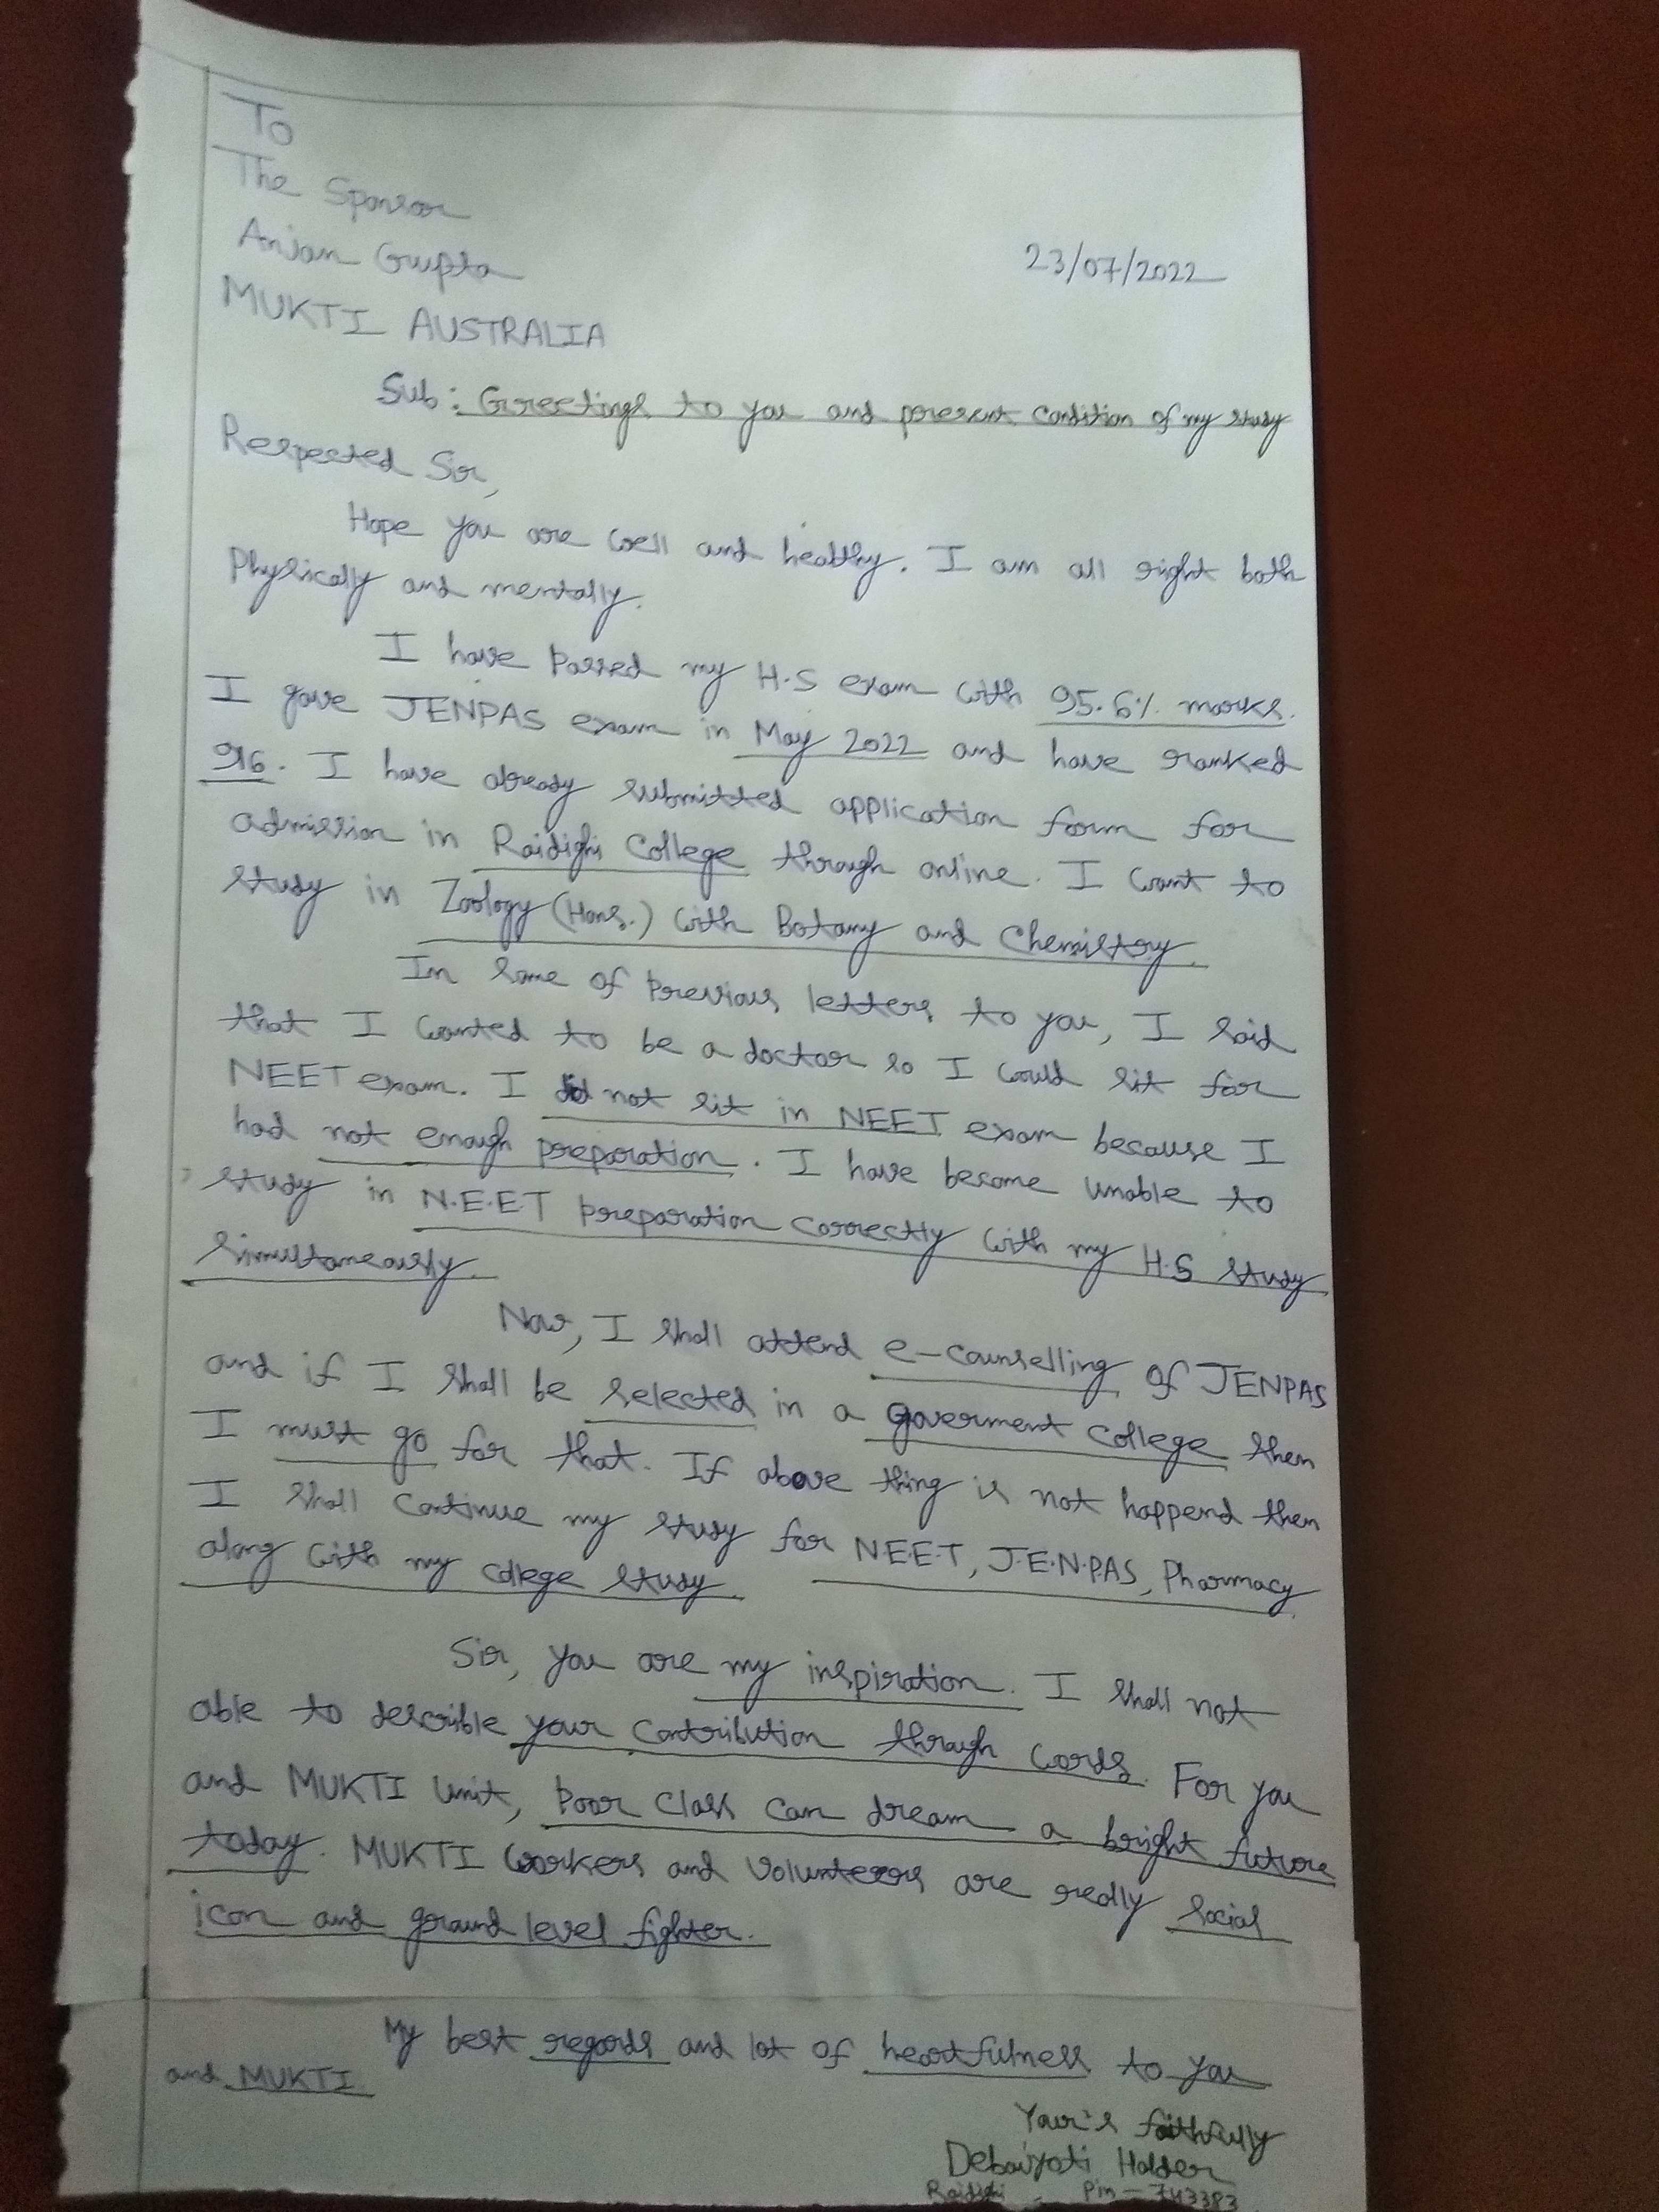 To
The Sponsor
Anjan Gupta
23/07/2022
MUKTI AUSTRALIA
Sub: Greetings to you and present condition of my study
Respected Sir,
Hope you are well and healthy. I am all right both
Physically and mentally.
I have passed my H.S exam with 95.6% marks.
I gave JENPAS exam in May 2022 and have ranked
916. I have already submitted application form for
admission in Raidighi College through online. I want to
study in Zoology (Hons.) with Botany and Chemistry.
In some of previous letters to you, I said
that I wanted to be a doctor so I could sit for
NEET exam. I did not sit in NEET exam because I
had not enough preparation. I have become unable to
study in N.E.E.T preparation correctly with my H.S study
simultaneously.
Now, I shall attend e-counselling of JENPAS
and if I shall be selected in a goverment college then
I must go for that. If above thing is not happend then
I shall continue my study for N.E.E.T, J.E.N.P.A.S, Pharmacy
along with my college study.
Sir, you are my inspiration. I shall not
able to describle your contribution through words. For you
and MUKTI unit, poor class can dream a bright future
today. MUKTI workers and volunteers are really social
icon and ground level fighter.
My best regards and lot of heartfulness to you
and MUKTI
Your's faithfully
Debajyoti Halder
Raidighi Pin - 743383